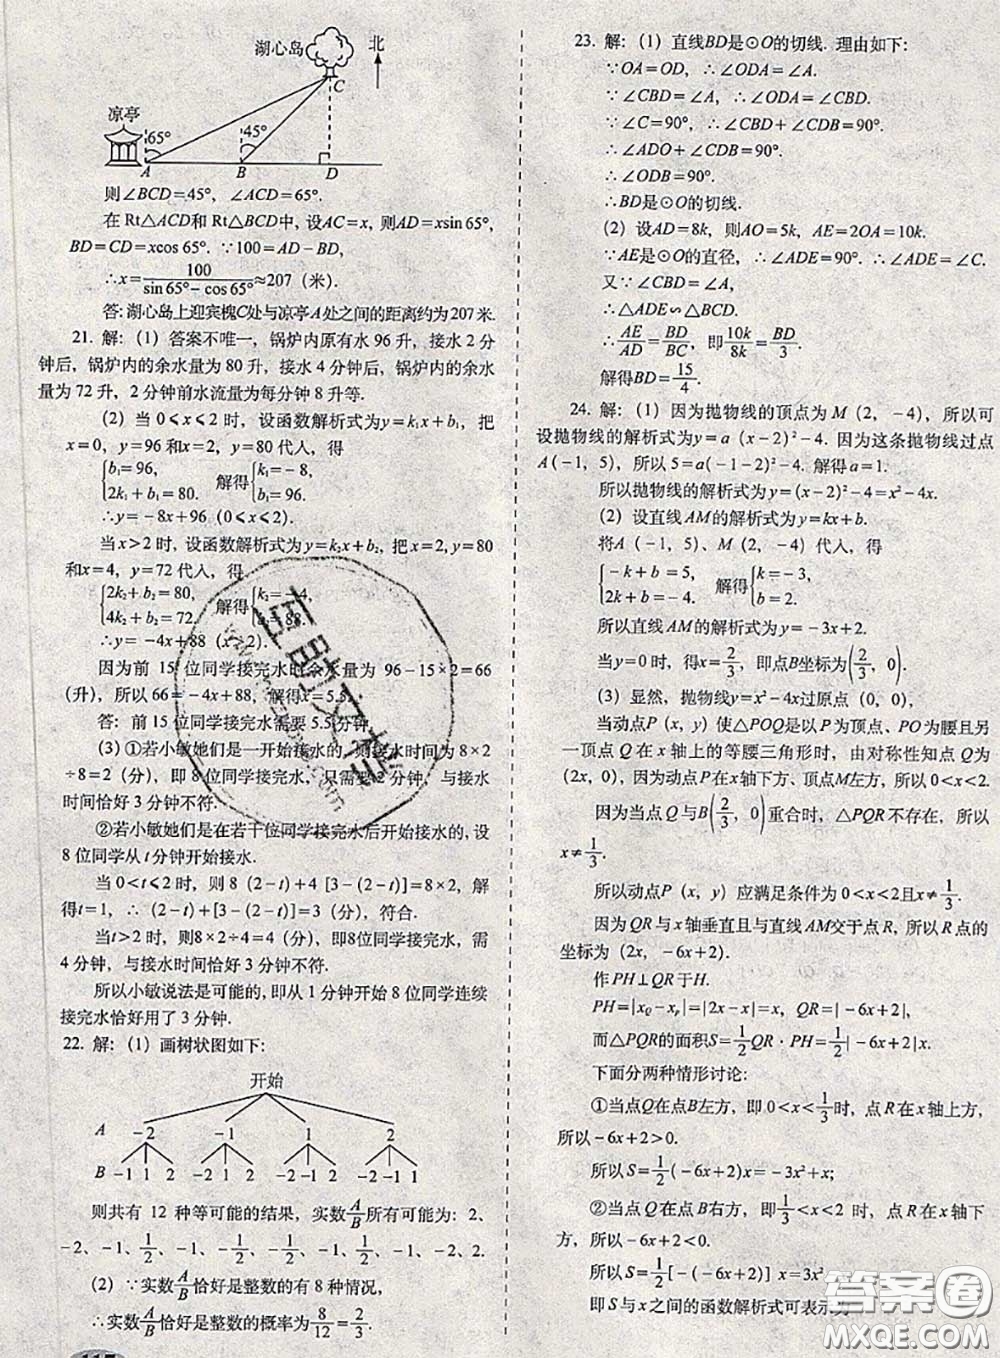 湖心岛 北
C
凉亭
65° 45°
A B D
则∠BCD=45°，∠ACD=65°.
在 Rt△ACD和 Rt△BCD中, 设AC=x, 则AD=xsin 65°,
BD=CD=xcos 65°. ∵100=AD-BD,
∴x=100/(sin 65°-cos 65°)≈207 (米).
答: 湖心岛上迎宾槐C处与凉亭A处之间的距离约为207米.
21. 解: (1) 答案不唯一，锅炉内原有水 96 升，接水 2 分
钟后，锅炉内的余水量为 80 升，接水 4 分钟后，锅炉内的余水
量为 72 升，2 分钟前水流量为每分钟 8 升等.
(2) 当 0≤x≤2 时，设函数解析式为y=k₁x+b₁，把
x=0，y=96 和x=2，y=80 代入，得
{b₁=96, 2k₁+b₁=80. 解得{k₁=-8, b₁=96.
∴y=-8x+96 (0≤x≤2).
当x>2 时, 设函数解析式为y=k₂x+b₂, 把x=2, y=80
和x=4，y=72 代入，得
{2k₂+b₂=80, 4k₂+b₂=72. 解得{k₂=-4, b₂=88.
∴y=-4x+88 (x>2).
因为前 15 位同学接完水时余水量为 96-15×2=66
(升)，所以 66=-4x+88，解得x=5.5.
答: 前 15 位同学接完水需要 5.5 分钟.
(3) ①若小敏她们是一开始接水的, 则接水时间为 8×2
÷8=2（分），即 8 位同学接完水，只需要 2 分钟，与接水
时间恰好 3 分钟不符.
②若小敏她们是在若干位同学接完水后开始接水的, 设
8 位同学从 t 分钟开始接水.
当 0<t≤2 时，则 8（2-t）+4［3-(2-t)］=8×2，解
得t=1，∴（2-t）+[3-(2-t)]=3（分），符合.
当t>2 时，则8×2÷4=4（分），即8位同学接完水，需
4 分钟，与接水时间恰好 3 分钟不符.
所以小敏说法是可能的, 即从 1 分钟开始 8 位同学连续
接完水恰好用了 3 分钟.
22. 解: (1) 画树状图如下:
开始
A -2 -1 1 2
B -1 1 2 -2 1 2 -2 -1 2 -2 -1 1
则共有 12 种等可能的结果，实数A/B所有可能为: 2、
-2、-1、1/2、-1、-1/2、-1/2、-1、1/2、-1、-2、2.
(2) ∵实数A/B恰好是整数的有 8 种情况,
∴实数A/B恰好是整数的概率为8/12=2/3.
23. 解: (1) 直线BD是⊙O的切线. 理由如下:
∵OA=OD，∴∠ODA=∠A.
∵∠CBD=∠A，∴∠ODA=∠CBD.
∵∠C=90°，∴∠CBD+∠CDB=90°.
∴∠ODA+∠CDB=90°.
∴∠ODB=90°.
∴BD是⊙O的切线.
(2) 设AD=8k，则AO=5k，AE=2OA=10k.
∵AE是⊙O的直径，∴∠ADE=90°. ∴∠ADE=∠C.
又∵∠CBD=∠A,
∴△ADE∽△BCD.
∴AE/AD=BD/BC，即10k/8k=BD/3.
解得BD=15/4.
24. 解: (1) 因为抛物线的顶点为 M (2，-4)，所以可
设抛物线的解析式为y=a (x-2)²-4. 因为这条抛物线过点
A(-1，5)，所以 5=a(-1-2)²-4. 解得a=1.
所以抛物线的解析式为y=(x-2)²-4=x²-4x.
(2) 设直线AM的解析式为y=kx+b.
将A (-1，5)、M (2，-4) 代入，得
{-k+b=5, 2k+b=-4. 解得{k=-3, b=2.
所以直线AM的解析式为y=-3x+2.
当y=0 时，得x=2/3，即点B坐标为(2/3，0).
(3) 显然，抛物线y=x²-4x过原点 (0，0)，
当动点P (x, y) 使△POQ是以 P为顶点、PO为腰且另
一顶点 Q 在 x 轴上的等腰三角形时，由对称性知点Q为
(2x，0)，因为动点P在x轴下方、顶点M左方，所以 0<x<2.
因为当点Q 与B(2/3，0)重合时，△PQR不存在，所以
x≠1/3.
所以动点P (x，y) 应满足条件为 0<x<2且x≠1/3.
因为 QR与x轴垂直且与直线AM交于点R，所以R点的
坐标为 (2x，-6x+2).
作 PH⊥QR于H.
PH=|x_Q-x_P|=|2x-x|=|x|，QR=|-6x+2|,
而△PQR的面积S=1/2QR·PH=1/2|x(-6x+2)|,
下面分两种情形讨论:
①当点Q在点B左方，即 0<x<1/3时，点R在x轴上方,
所以-6x+2>0.
所以 S=1/2(-6x+2)x=-3x²+x;
②当点Q在点B右方，即1/3<x<2 时，点R在x轴下
方，所以-6x+2<0.
所以 S=1/2[-(-6x+2)]x=3x²-x.
即S与x之间的函数解析式可表示为
互助文档
答案圈
MXQE.COM